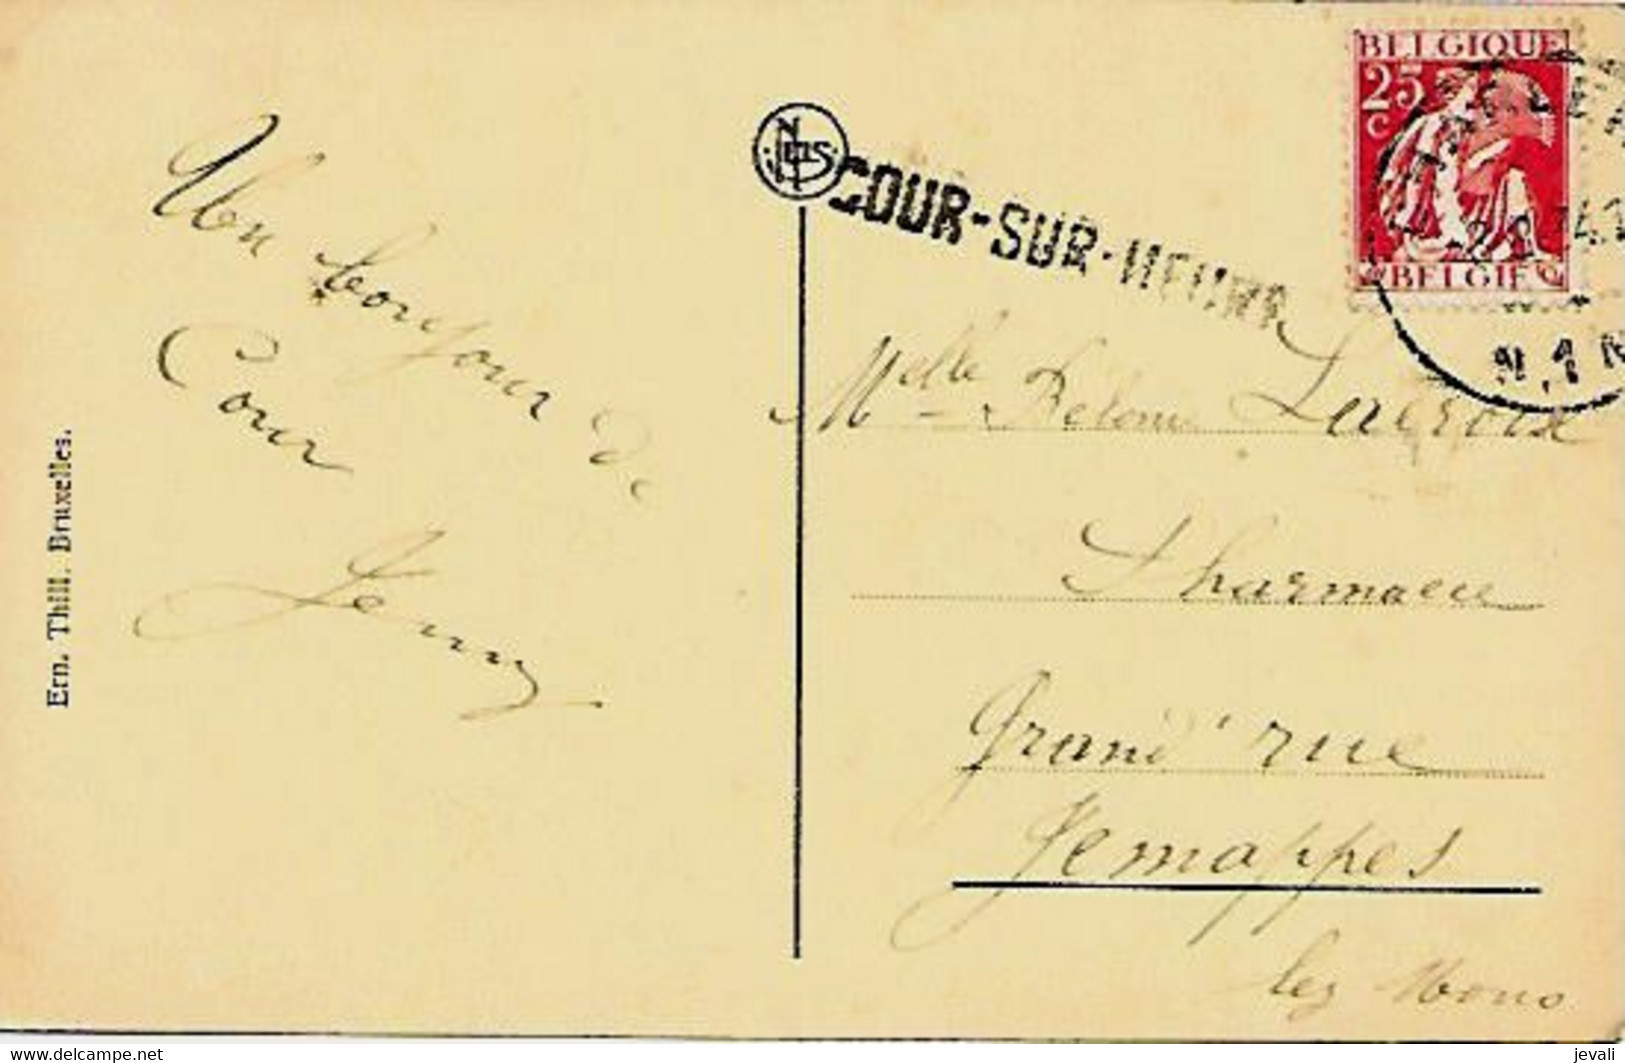 Un bonjour de
Cour
Jenny
Ern. Thill. Bruxelles.
NELS
COUR-SUR-HEURE
BELGIQUE
25
C
BELGIE
N.1N
Melle Lacroix
Pharmacie
Grand' rue
Jemappes
lez Mons
www.delcampe.net
jevali